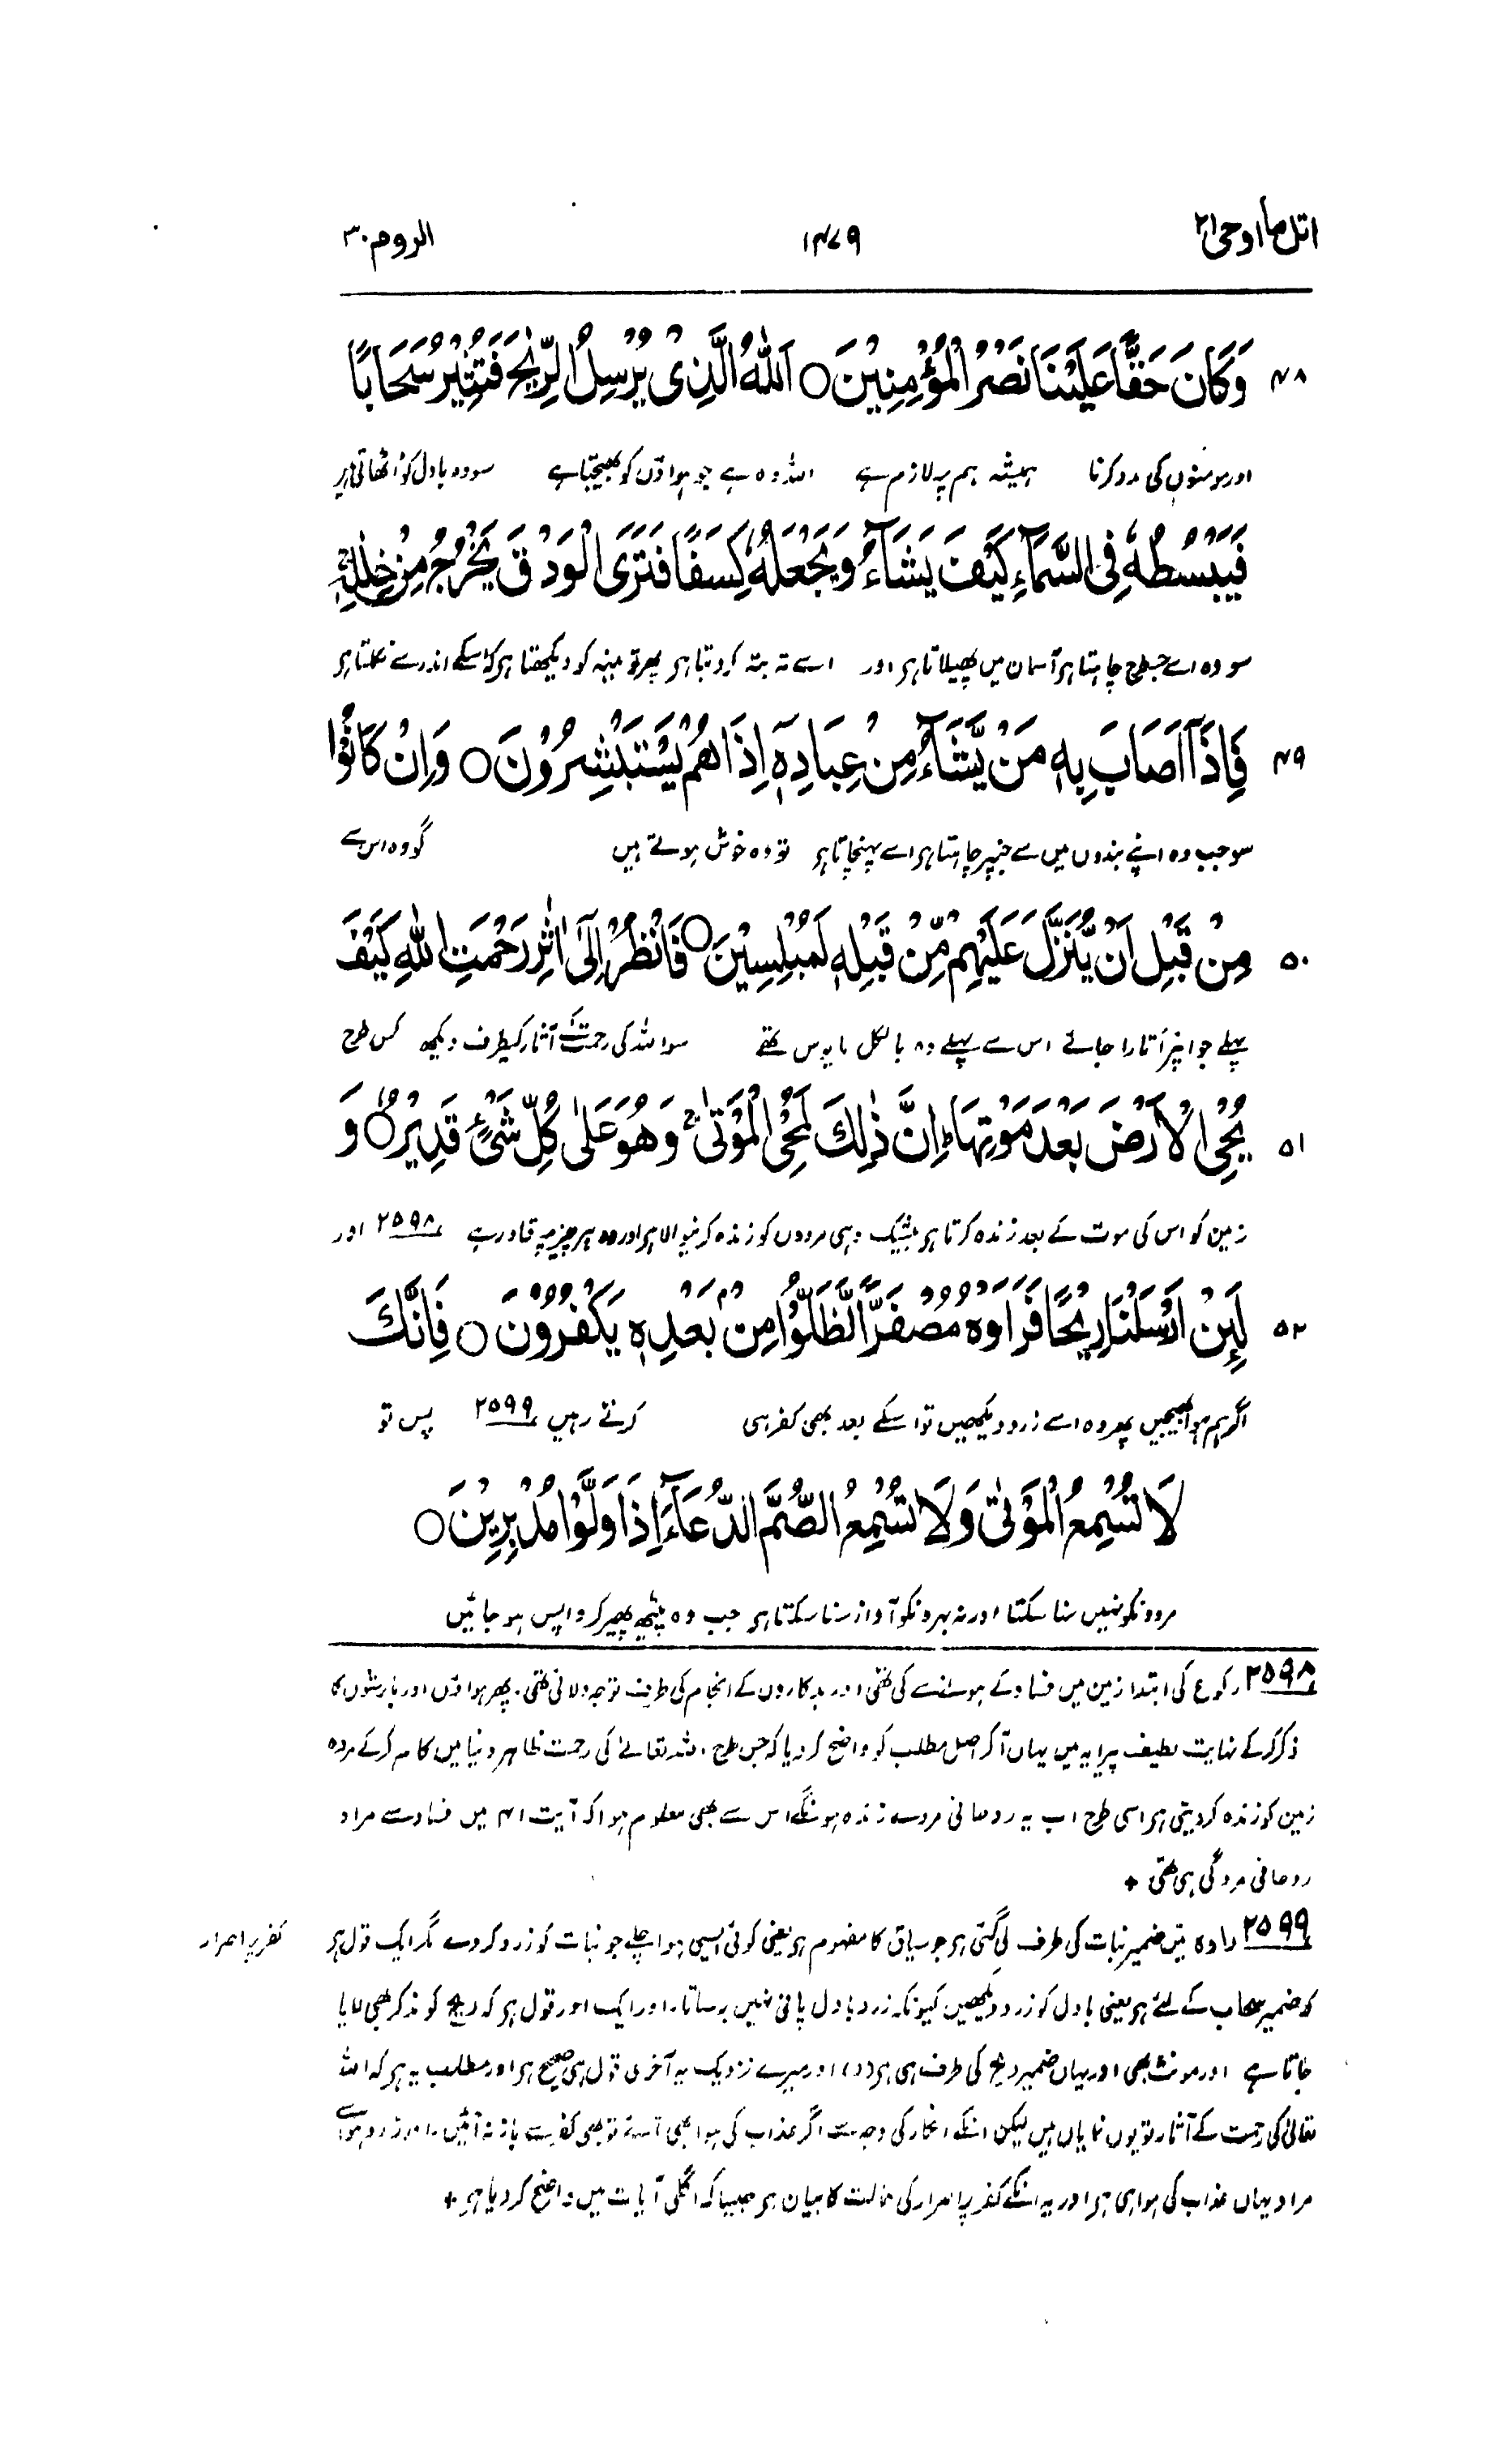 اتل ما اوحی ۲۱
۱۴۷۹
الروم ۳۰
۴۸ وَكَانَ حَقًّا عَلَيْنَا نَصْرُ الْمُؤْمِنِيْنَ ○ اَللّٰهُ الَّذِىْ يُرْسِلُ الرِّيٰحَ فَتُثِيْرُ سَحَابًا
اور مومنوں کی مدد کرنا ہمیشہ ہم پر لازم ہے اللہ وہ ہے جو ہواؤں کو بھیجتا ہے سو وہ بادل کو اُٹھاتی ہیں
فَيَبْسُطُهٗ فِى السَّمَآءِ كَيْفَ يَشَآءُ وَيَجْعَلُهٗ كِسَفًا فَتَرَى الْوَدْقَ يَخْرُجُ مِنْ خِلٰلِهٖ ۚ
سو وہ اسے جسطرح چاہتا ہر آسمان میں پھیلاتا ہر اور اسے تہ بتہ کر دیتا ہر پھر تو مینہ کو دیکھتا ہر کہ اسکے اندر سے نکلتا ہر
۴۹ فَاِذَآ اَصَابَ بِهٖ مَنْ يَّشَآءُ مِنْ عِبَادِهٖٓ اِذَا هُمْ يَسْتَبْشِرُوْنَ ○ وَاِنْ كَانُوْا
سو جب وہ اپنے بندوں میں سے جنپر چاہتا ہر اسے پہنچاتا ہر تو وہ خوش ہوتے ہیں گو وہ اس سے
۵۰ مِنْ قَبْلِ اَنْ يُّنَزَّلَ عَلَيْهِمْ مِّنْ قَبْلِهٖ لَمُبْلِسِيْنَ ○ فَانْظُرْ اِلٰٓى اٰثٰرِ رَحْمَتِ اللّٰهِ كَيْفَ
پہلے جو انپر اُتارا جائے اس سے پہلے وہ بالکل مایوس تھے سو اللہ کی رحمت کے آثار کیطرف دیکھ کس طرح
۵۱ يُحْىِ الْاَرْضَ بَعْدَ مَوْتِهَا ؕ اِنَّ ذٰلِكَ لَمُحْىِ الْمَوْتٰى ۚ وَهُوَ عَلٰى كُلِّ شَىْءٍ قَدِيْرٌ ○ وَ
زمین کو اس کی موت کے بعد زندہ کرتا ہر بیشک وہی مردوں کو زندہ کرنیوالا ہر اور وہ ہر چیز پر قادر ہے ۲۵۹۸ اور
۵۲ لَئِنْ اَرْسَلْنَا رِيْحًا فَرَاَوْهُ مُصْفَرًّا لَّظَلُّوْا مِنْۢ بَعْدِهٖ يَكْفُرُوْنَ ○ فَاِنَّكَ
اگر ہم ہوا بھیجیں پھر وہ اسے زرد دیکھیں تو اسکے بعد بھی کفر ہی کرتے رہیں ۲۵۹۹ پس تو
لَا تُسْمِعُ الْمَوْتٰى وَلَا تُسْمِعُ الصُّمَّ الدُّعَآءَ اِذَا وَلَّوْا مُدْبِرِيْنَ ○
مردونکو نہیں سنا سکتا اور نہ بہرونکو آواز سنا سکتا ہر جب وہ پیٹھ پھیر کر واپس ہو جائیں
۲۵۹۸ رکوع کی ابتدا زمین میں فساد کے ہونے سے کی تھی اور بدکاروں کے انجام کی طرف توجہ دلائی تھی۔ پھر ہواؤں اور بارشوں کا
ذکر کر کے نہایت لطیف پیرایہ میں یہاں آکر اصل مطلب کو واضح کر دیا کہ جس طرح اللہ تعالےٰ کی رحمت ظاہر دنیا میں کام کر کے مردہ
زمین کو زندہ کر دیتی ہر اسی طرح اب یہ روحانی مردے زندہ ہونگے اس سے بھی معلوم ہوا کہ آیت ۴۱ میں فساد سے مراد
روحانی مردگی ہی تھی +
۲۵۹۹ راوہ میں ضمیر نبات کی طرف لی گئی ہر جو سیاق کا مفہوم ہر یعنی کوئی ایسی ہوا چلے جو نبات کو زرد کر دے مگر ایک قول ہر
کفر پر اصرار
کہ ضمیر سحاب کے لئے ہر یعنی بادل کو زرد دیکھیں کیونکہ زرد بادل پانی نہیں برساتا۔ اور ایک اور قول ہر کہ ریح کو مذکر بھی لایا
جاتا ہے اور مونث بھی اور یہاں ضمیر ریح کی طرف ہی ہر (ر) اور میرے نزدیک یہ آخری قول ہی صحیح ہر اور مطلب یہ ہر کہ اللہ
تعالیٰ کی رحمت کے آثار تو یوں نمایاں ہیں لیکن انکے انکار کی وجہ سے اگر عذاب کی ہوا بھی آئے تو بھی کفر سے باز نہ آئیں۔ اور زرد ہوا سے
مراد یہاں عذاب کی ہوا ہی ہر اور یہ انکے کفر پر اصرار کی حالت کا بیان ہر جیسا کہ اگلی آیات میں واضح کر دیا ہر +